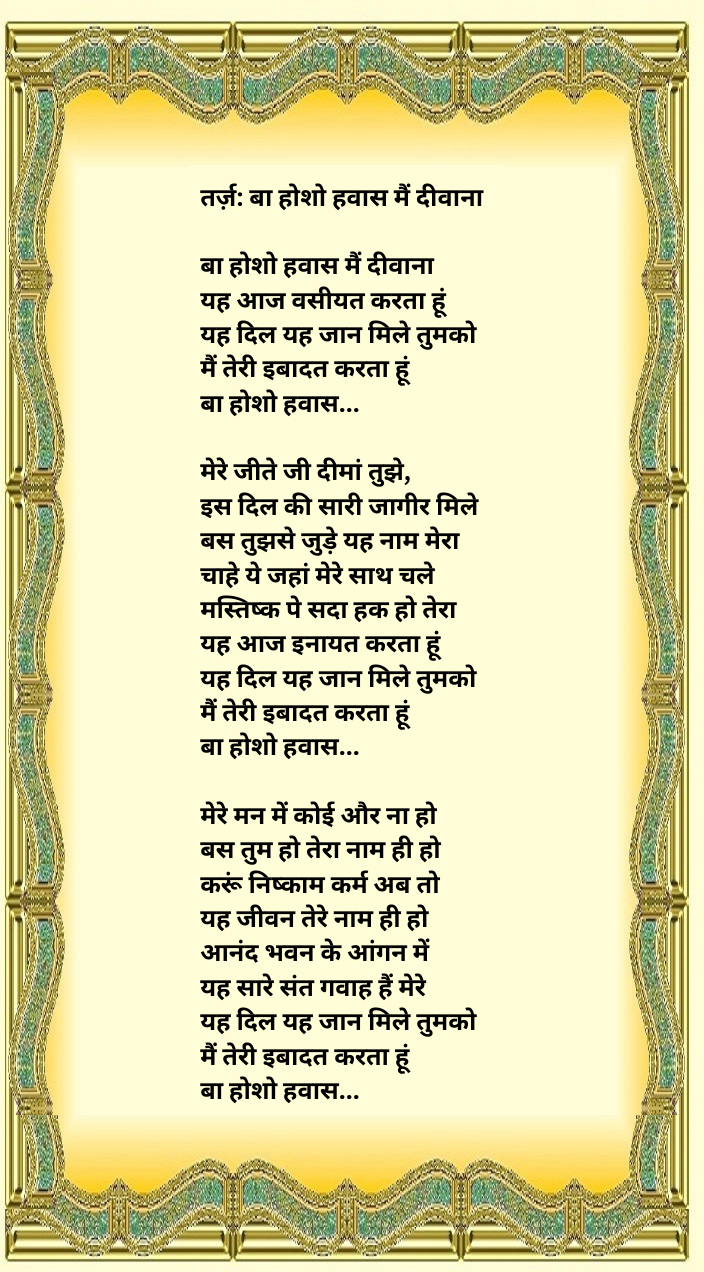 तर्ज़: बा होशो हवास मैं दीवाना
बा होशो हवास मैं दीवाना
यह आज वसीयत करता हूं
यह दिल यह जान मिले तुमको
मैं तेरी इबादत करता हूं
बा होशो हवास...
मेरे जीते जी दीमां तुझे,
इस दिल की सारी जागीर मिले
बस तुझसे जुड़े यह नाम मेरा
चाहे ये जहां मेरे साथ चले
मस्तिष्क पे सदा हक हो तेरा
यह आज इनायत करता हूं
यह दिल यह जान मिले तुमको
मैं तेरी इबादत करता हूं
बा होशो हवास...
मेरे मन में कोई और ना हो
बस तुम हो तेरा नाम ही हो
करूं निष्काम कर्म अब तो
यह जीवन तेरे नाम ही हो
आनंद भवन के आंगन में
यह सारे संत गवाह हैं मेरे
यह दिल यह जान मिले तुमको
मैं तेरी इबादत करता हूं
बा होशो हवास...